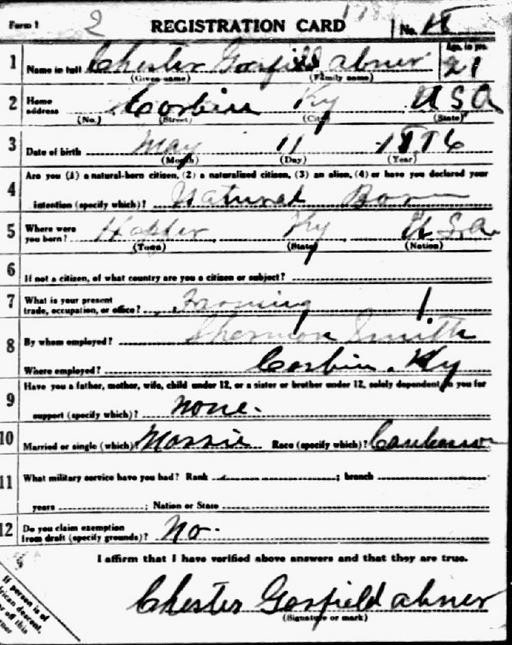 Form 1 2 REGISTRATION CARD No. 18
1 Name in full Chester Garfield abner Age, in yrs. 21
(Given name) (Family name)
2 Home address Corbin Ky USA
(No.) (Street) (City) (State)
3 Date of birth May 11 1896
(Month) (Day) (Year)
4 Are you (1) a natural-born citizen, (2) a naturalized citizen, (3) an alien, (4) or have you declared your
intention (specify which)? Natural Born
5 Where were you born? Ky U.S.A.
(Town) (State) (Nation)
6 If not a citizen, of what country are you a citizen or subject?
7 What is your present trade, occupation, or office? Farming 1
8 By whom employed? Sherman Smith
Where employed? Corbin. Ky
9 Have you a father, mother, wife, child under 12, or a sister or brother under 12, solely dependent on you for
support (specify which)? None.
10 Married or single (which)? Race (specify which)?
11 What military service have you had? Rank ; branch
years ; Nation or State
12 Do you claim exemption from draft (specify grounds)? No.
I affirm that I have verified above answers and that they are true.
Chester Garfield abner
(Signature or mark)
If person is of
African descent,
off this
corner